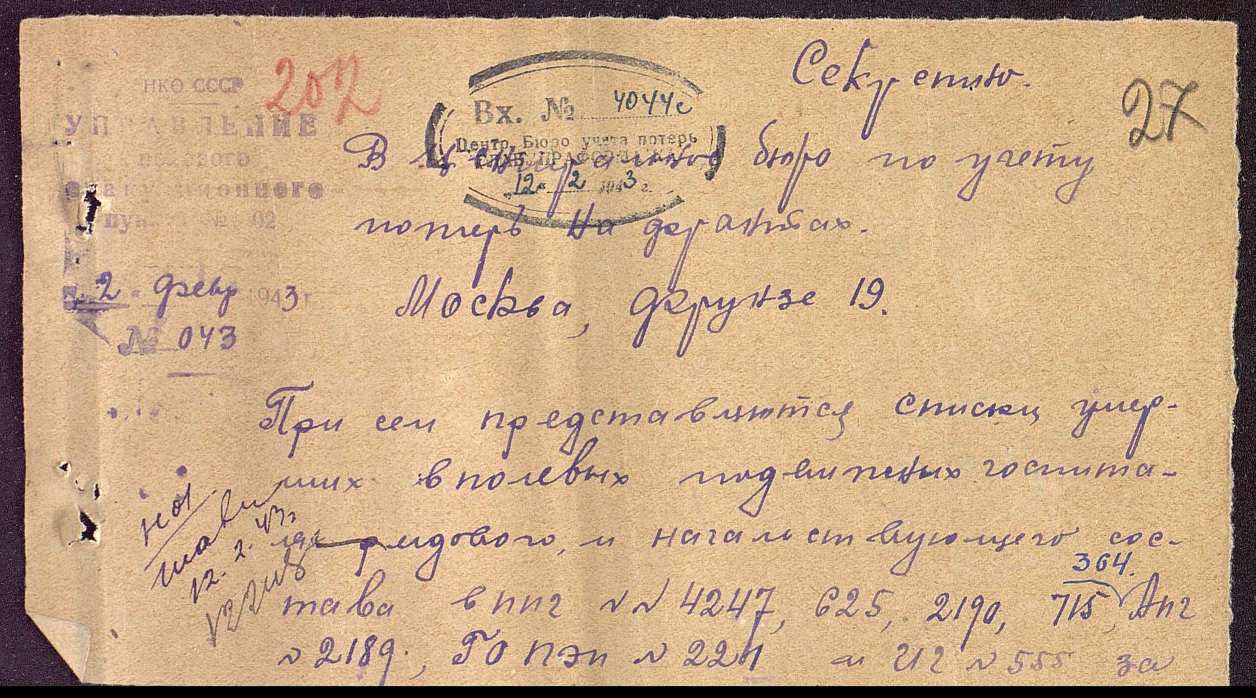 Секретно.
27
202
НКО СССР
УПРАВЛЕНИЕ
полевого
эвакуационного
пун. № 92
2 февр 1943 г.
№ 043
Вх. № 4044с
Центр. Бюро учета потерь
12 2 1943 г.
В центральное бюро по учету
потерь на фронтах.
Москва, Фрунзе 19.
При сем представляются списки умер-
ших в полевых подвижных госпита-
лях рядового, и начальствующего сос-
364.
тава в ппг NN 4247, 625, 2190, 715, Апг
N 2189, ГОПЭП N 221 и ИГ N 555 за
12. 2. 43 г